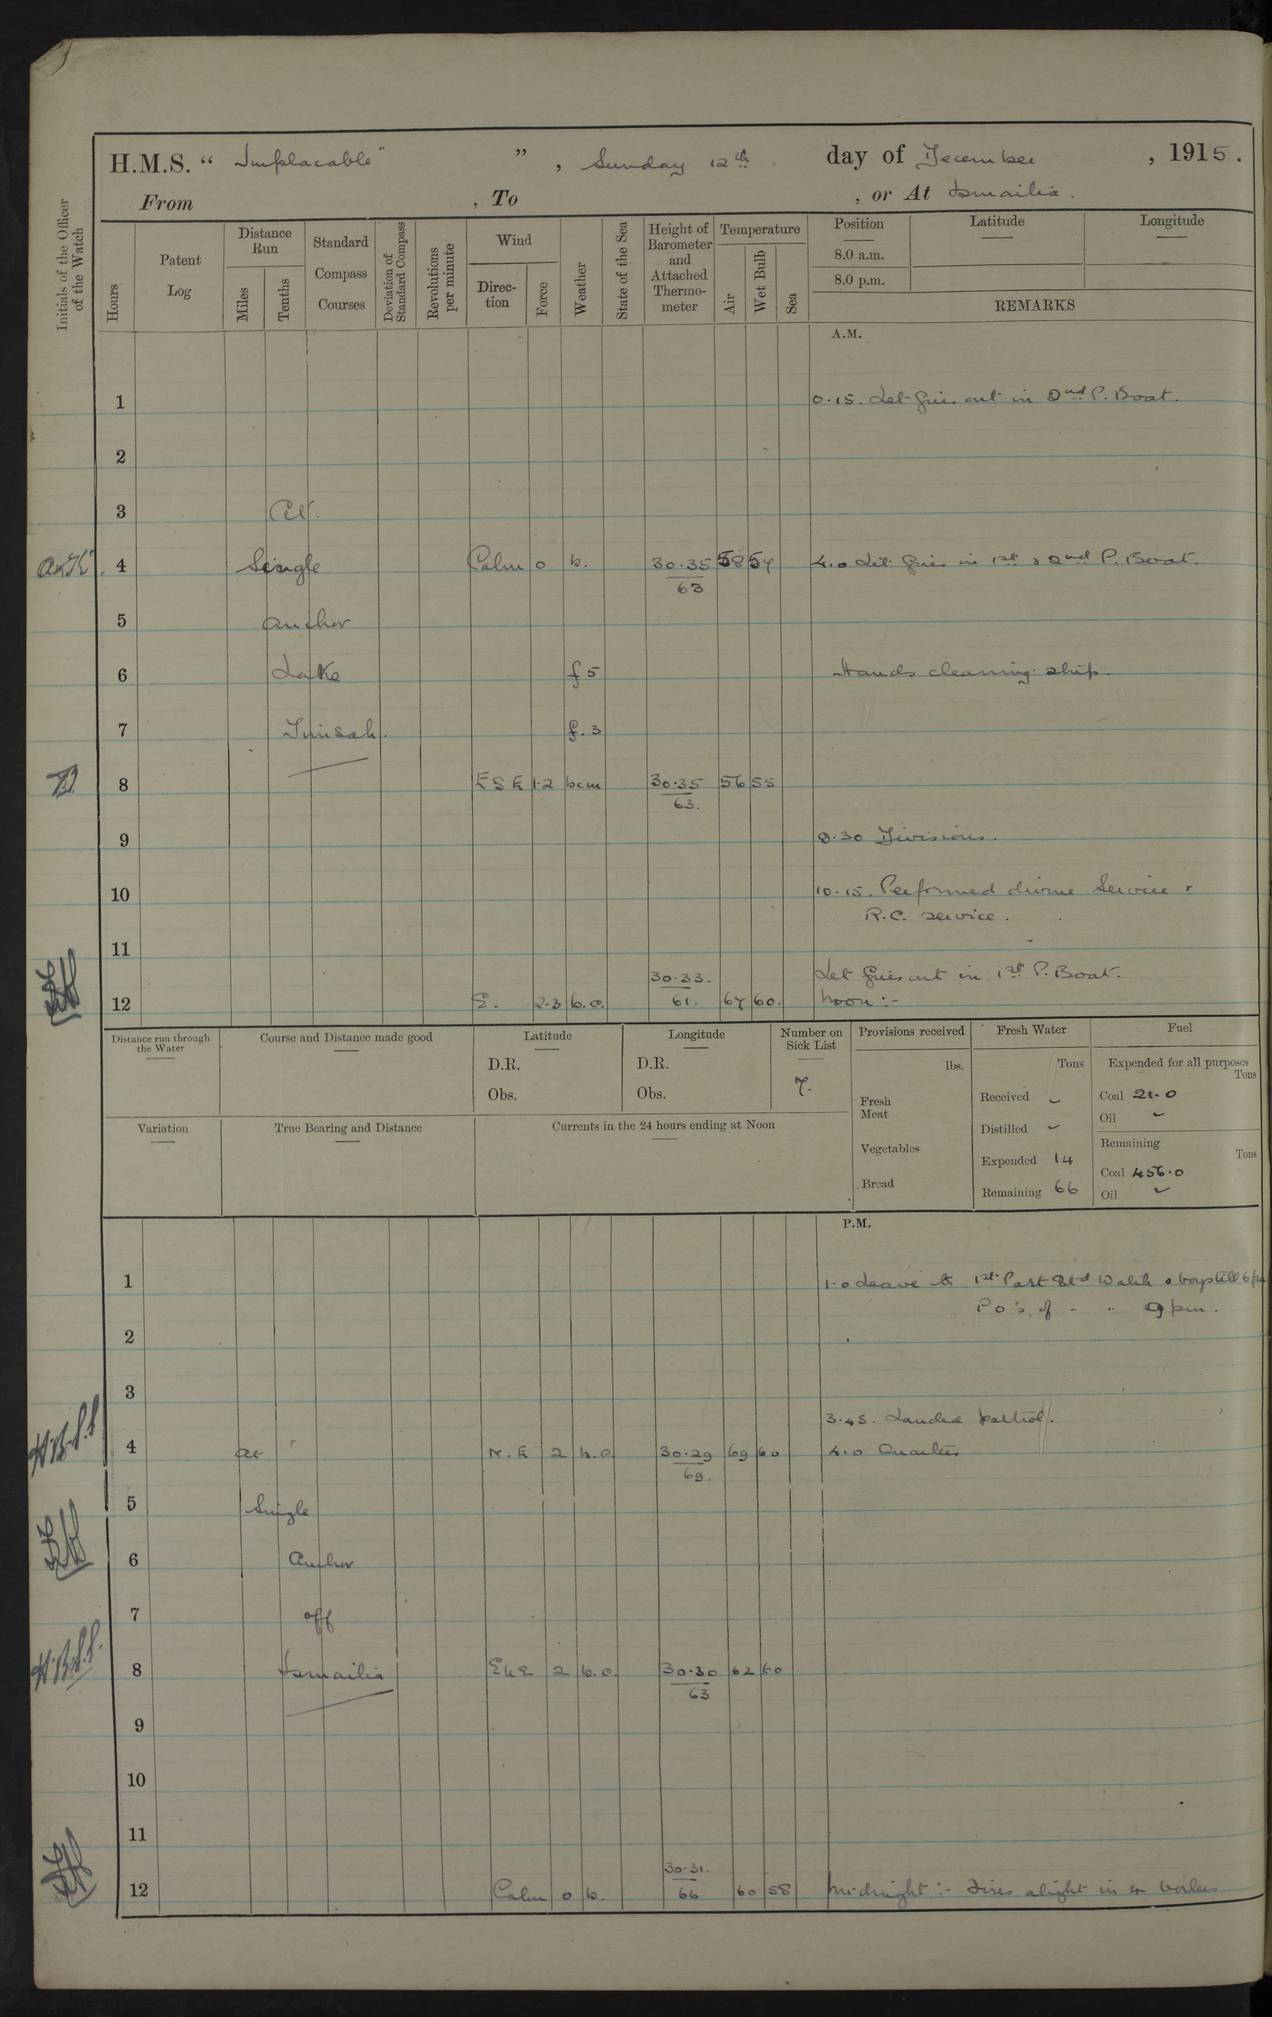 H.M.S. “ Implacable ” , Sunday 12th day of December , 1915.
From , To , or At Ismailia.
Initials of the Officer of the Watch
Hours
Patent Log
Distance Run
Miles
Tenths
Standard Compass Courses
Deviation of Standard Compass
Revolutions per minute
Wind
Direction
Force
Weather
State of the Sea
Height of Barometer and Attached Thermometer
Temperature
Air
Wet Bulb
Sea
Position
8.0 a.m.
8.0 p.m.
Latitude
Longitude
REMARKS
A.M.
1 0.15. Let fires out in 2nd P. Boat.
2
3 At.
4 Single Calm 0 b. 30.35 58 57 4.0 Lit fires in 1st & 2nd P. Boat.
63
5 anchor
6 Lake f 5 Hands cleaning ship.
7 Timsah. f. 3
8 ESE 1.2 bcm 30.35 56 55
63.
9 9.30 Divisions.
10 10.15. Performed divine Service &
R.C. service.
11
30.33. Let fires out in 1st P. Boat.
12 E. 2.3 b.c. 61. 67 60. Noon :-
Distance run through the Water
Course and Distance made good
Latitude
D.R.
Obs.
Longitude
D.R.
Obs.
Number on Sick List
7.
Provisions received
lbs.
Fresh Meat
Vegetables
Bread
Fresh Water
Tons
Received
Distilled
Expended 14
Remaining 66
Fuel
Expended for all purposes
Tons
Coal 21.0
Oil
Remaining
Tons
Coal 456.0
Oil
Variation
True Bearing and Distance
Currents in the 24 hours ending at Noon
P.M.
1 1.0 Leave to 1st Part Watch & boys till 6 pm
P.O's. of " " 9 pm.
2
3
3.45. Landed patrol.
4 at N.E 2 b.c. 30.29 69 60 4.0 Quarters
69.
5 Single
6 Anchor
7 off
8 Ismailia ENE 2 b.c. 30.30 62 60
63
9
10
11
30.31.
12 Calm 0 b. 66 60 58 Midnight :- Fires alight in 4 boilers